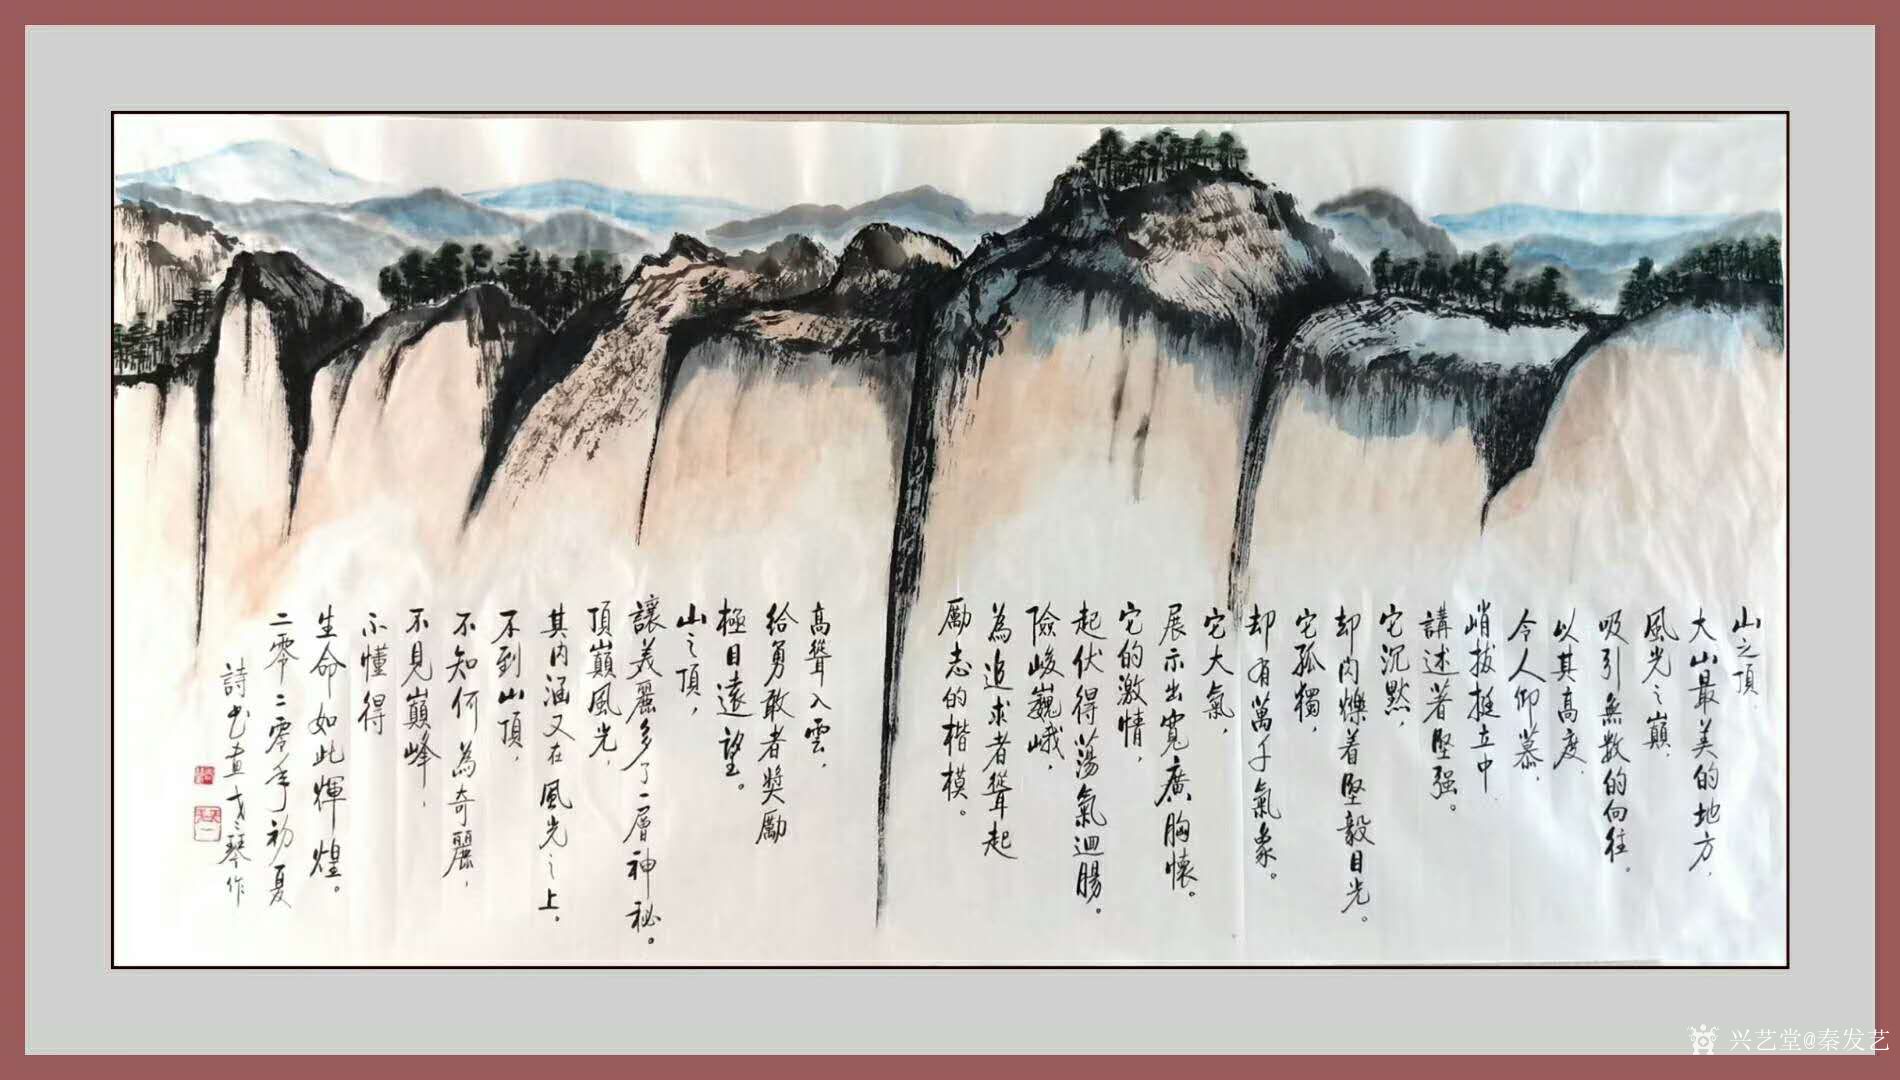 山之頂.
大山最美的地方.
風光之巔.
吸引無数的向往.
以其高度.
令人仰慕.
峭拔挺立中
講述著堅强。
它沉黙,
却闪爍着堅毅目光。
它孤獨,
却有萬千氣象。
它大氣,
展示出寛廣胸懐。
它的激情,
起伏得蕩氣迴腸。
險峻巍峨,
為追求者聳起
勵志的楷模。
高聳入雲,
給勇敢者獎勵
極目遠望。
山之頂,
讓美麗多了一層神秘。
頂巔風光,
其内涵又在風光之上.
不到山頂,
不知何為奇麗,
不見巔峰,
不懂得
生命如此輝煌。
二零二零年初夏
詩书畫
琴作
兴艺堂@秦发艺